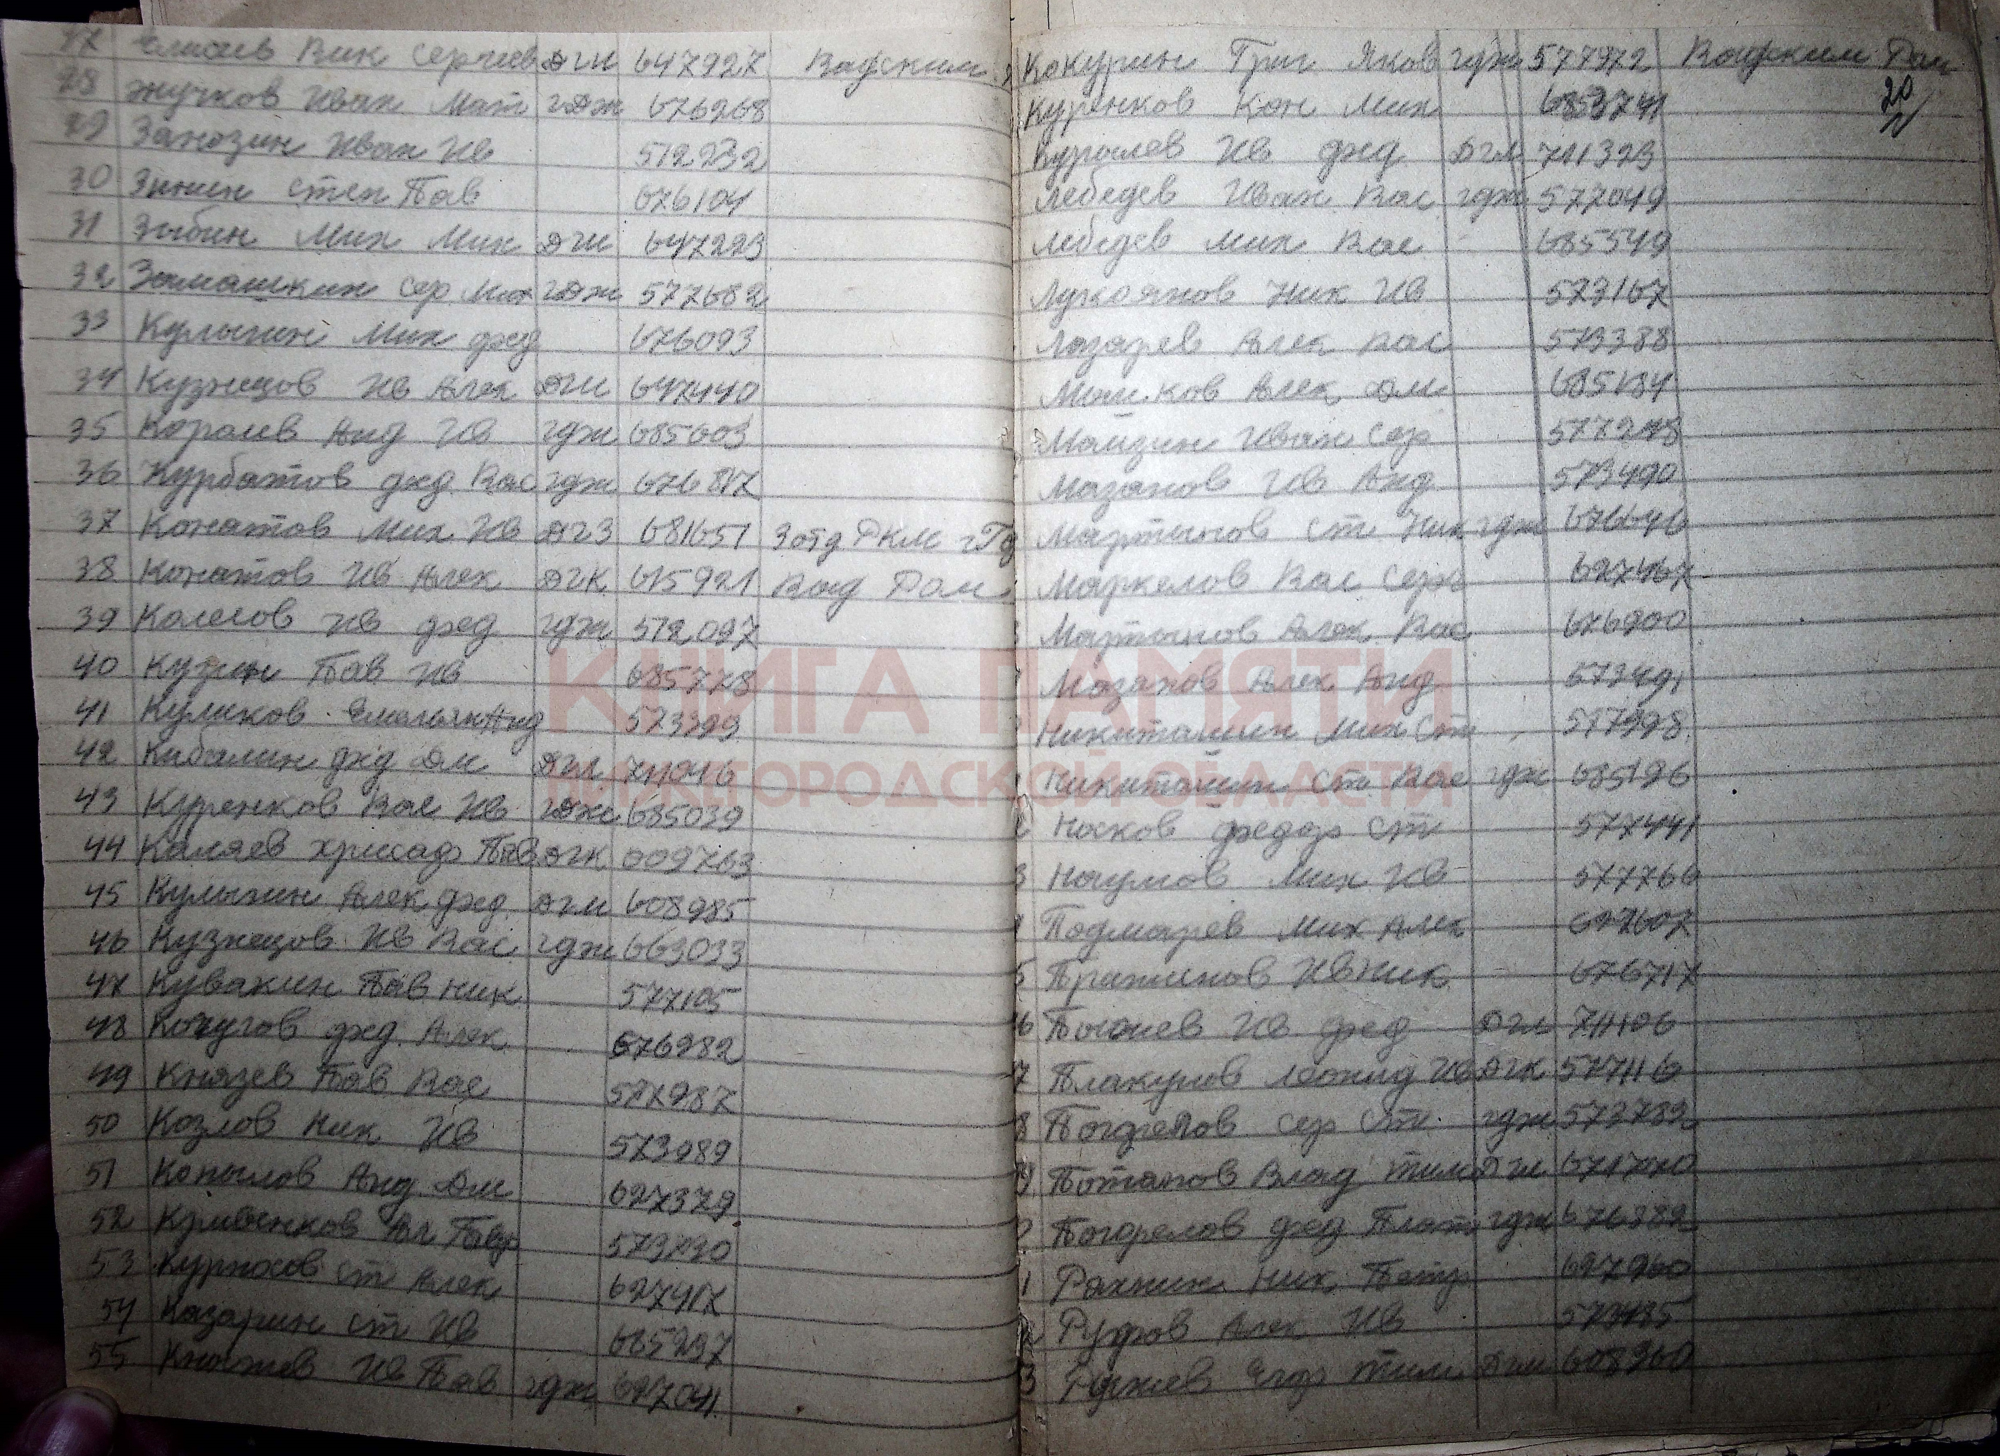 Вик Сергеев ДГШ 647927 Вадским
28 Жучков Иван Мат гдж 676268
29 Занозин Иван Ив 572232
30 Зинин Степ Пав 676104
31 Зыбин Мих Мих ДГШ 647223
32 Замашкин Сер. Мих гдж 577682
33 Кулыгин Мих фед 676093
34 Кузнецов Ив Алек ДГШ 647440
35 Королев Анд Ив гдж 685603
36 Курбатов фед Вас гдж 676817
37 Конатов Мих Ив ДГЗ 681651 3 отд РКМ
38 Конатов Ив Алек ДГК 615921 Вад
39 Колесов Ив фед гдж 572097
40 Курин Пав Ив 685778
41 Куликов Емельян Анд 573393
42 Кабалин фед Дм ДГЛ 711046
43 Куренков Вас Ив гдж 685039
44 Каляев Пав ДГК 009763
45 Кулыгин Алек фед ДГМ 608985
46 Кузнецов Ив Вас гдж 663033
47 Кувакин Пав Ник 577105
48 фед. Алек 676282
49 Князев Пав Вас 577987
50 Козлов Ник Ив 573989
51 Копылов Анд Дм 627379
52 573730
53 Курносов Ст Алек 627417
54 Казарин Ст Ив 685297
55 Ив Пав гдж 627041
Кокурин Григ Яков гдж 577972 Вадским
20
Куренков Кон Мих
Ив фед ДГЛ 711323
Лебедев Иван Вас гдж 577049
Лебедев Мих Вас 685549
Лукоянов Ник Ив 573167
Лазарев Алек Вас 573388
Алек Дм 685134
Майзин Иван Сер 577278
Мазанов Ив Анд 573490
Мартынов Ст Ник гдж 676646
Маркелов Вас Серг 627467
Мартынов Алек Вас 676900
Мазанов Алек Анд 573491
Никиташин Мих Ст 577398
Никиташин Ст Вас гдж 685196
Носков федор Ст 577441
Наумов Мих Ив 577766
Подмарев Мих Алек 627607
Ив Ник 676717
Ив фед ДГЛ 711106
Плакунов Леонид Ив ДГК 577116
Погорелов Сер Ст гдж 573789
Потапов Влад Тим
Погорелов фед Плат гдж 676382
Рахнин Ник Петр 627960
Руфов Алек Ив 577435
Егор Тим ДГМ 608360
КНИГА ПАМЯТИ
НИЖЕГОРОДСКОЙ ОБЛАСТИ